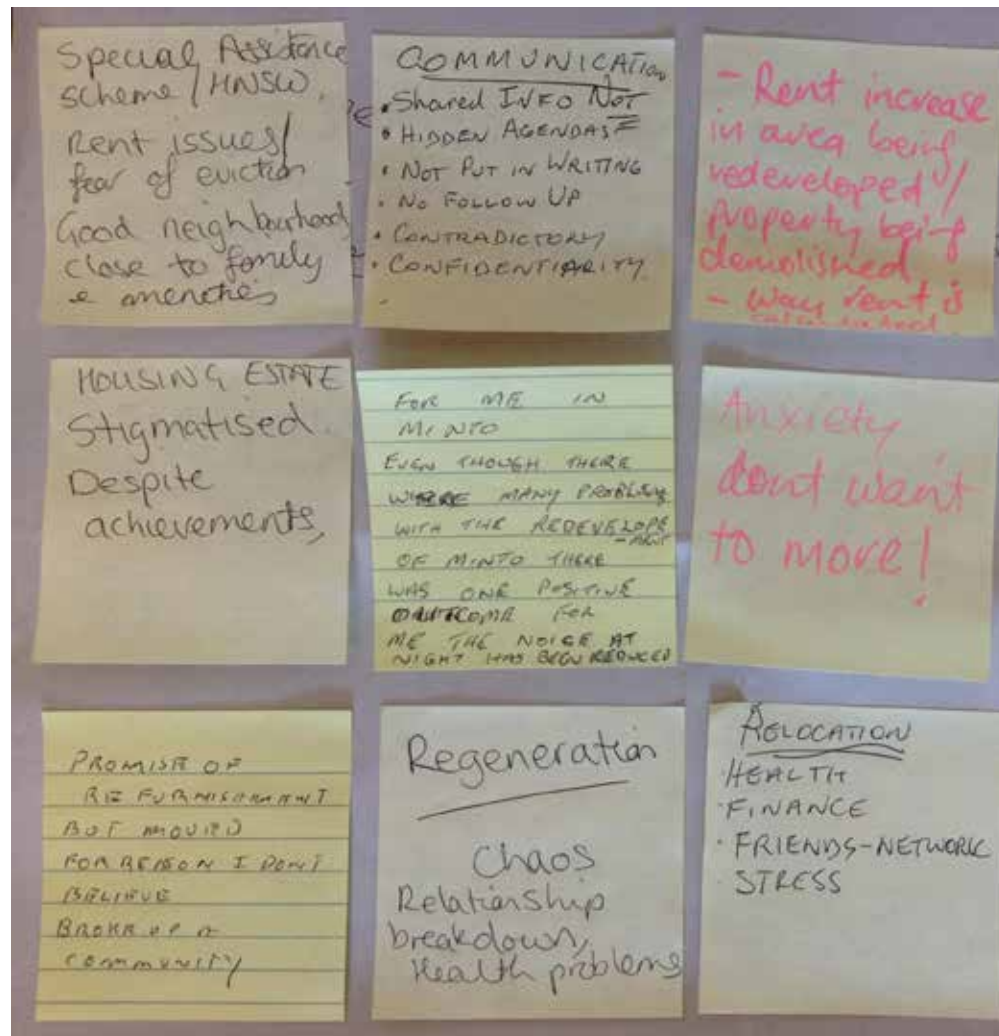 Special Assistance
scheme / HNSW.
Rent issues/
fear of eviction
Good neighbourhood
close to family
COMMUNICATION
• Shared INFO NOT
• HIDDEN AGENDAS
• NOT PUT IN WRITING
• NO FOLLOW UP
• CONTRADICTORY
• CONFIDENTIARITY.
- Rent increase
in area being
redeveloped /
property being
demolished.
- Way rent is
HOUSING ESTATE
Stigmatised
Despite
achievements,
FOR ME IN
MINTO
EVEN THOUGH THERE
WHERE MANY PROBLEMS
WITH THE REDEVELOPE
-MENT
OF MINTO THERE
WAS ONE POSITIVE
OUTCOME FOR
ME THE NOISE AT
NIGHT HAS BEEN REDUCED
Anxiety
dont want
to move!
PROMISE OF
BUT MOVED
FOR REASON I DONT
BELIEVE
BROKE UP A
COMMUNITY
Regeneration
Chaos
Relationship
breakdown,
Health problems
RELOCATION
HEALTH
· FINANCE
· FRIENDS-NETWORK
· STRESS